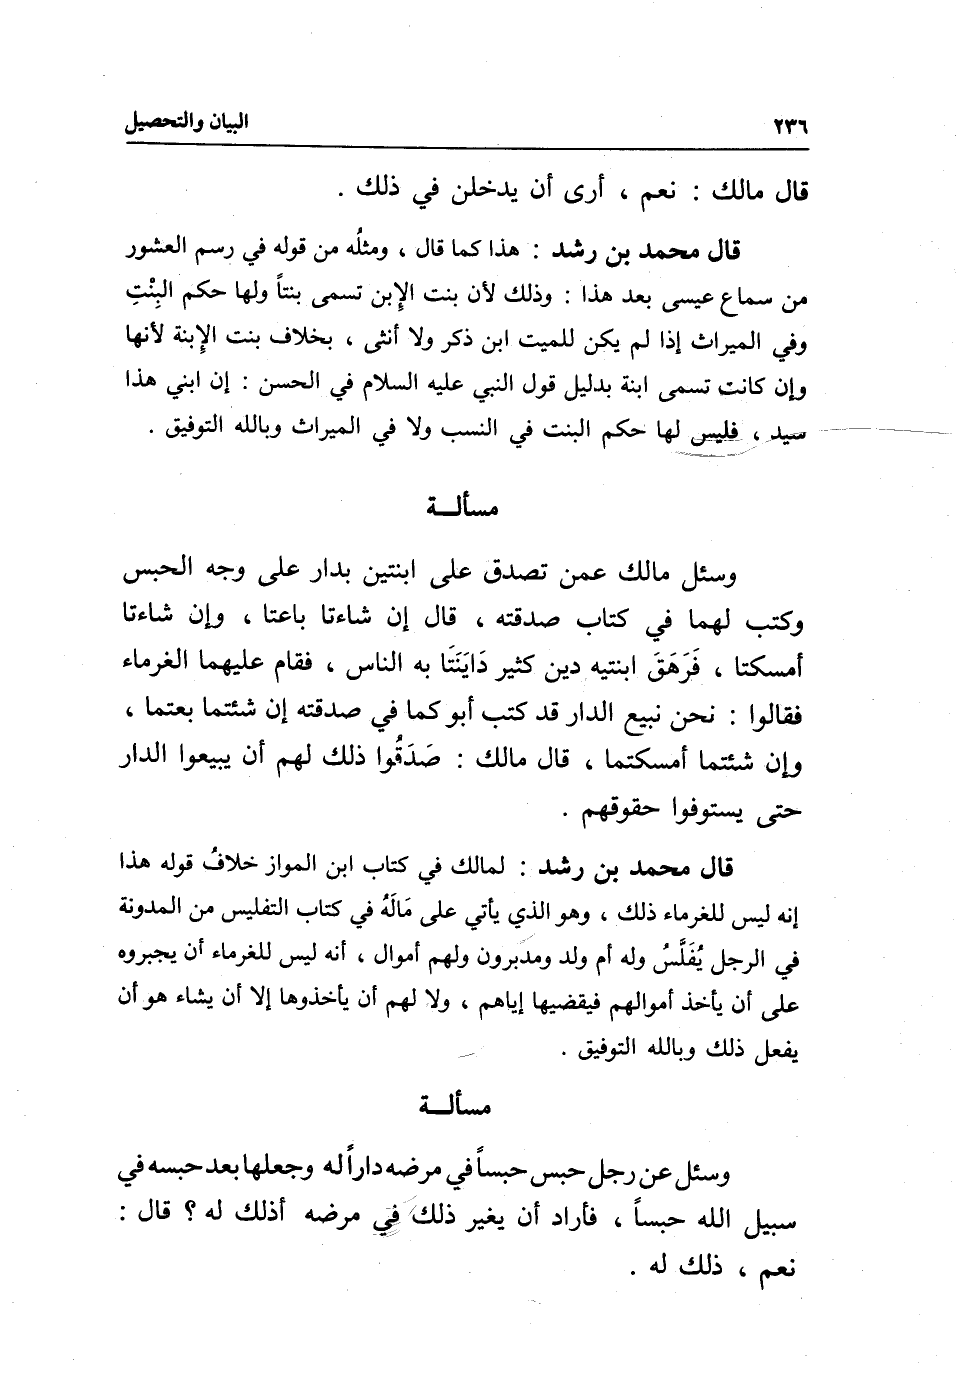 ٢٣٦ البيان والتحصيل
قال مالك : نعم ، أرى أن يدخلن في ذلك .
قال محمد بن رشد : هذا كما قال ، ومثلُه من قوله في رسم العشور
من سماع عيسى بعد هذا : وذلك لأن بنت الإبن تسمى بنتاً ولها حكم البِنْتِ
وفي الميراث إذا لم يكن للميت ابن ذكر ولا أنثى ، بخلاف بنت الإبنة لأنها
وإن كانت تسمى ابنة بدليل قول النبي عليه السلام في الحسن : إن ابني هذا
سيد ، فليس لها حكم البنت في النسب ولا في الميراث وبالله التوفيق .
مسألة
وسئل مالك عمن تصدق على ابنتين بدار على وجه الحبس
وكتب لهما في كتاب صدقته ، قال إن شاءتا باعتا ، وإن شاءتا
أمسكتا ، فَرَهَقَ ابنتيه دين كثير دَايَنَتَا به الناس ، فقام عليهما الغرماء
فقالوا : نحن نبيع الدار قد كتب أبو كما في صدقته إن شئتما بعتما ،
وإن شئتما أمسكتما ، قال مالك : صَدَقُوا ذلك لهم أن يبيعوا الدار
حتى يستوفوا حقوقهم .
قال محمد بن رشد : لمالك في كتاب ابن المواز خلافُ قوله هذا
إنه ليس للغرماء ذلك ، وهو الذي يأتي على مَالَهُ في كتاب التفليس من المدونة
في الرجل يُفَلَّسُ وله أم ولد ومدبرون ولهم أموال ، أنه ليس للغرماء أن يجبروه
على أن يأخذ أموالهم فيقضيها إياهم ، ولا لهم أن يأخذوها إلا أن يشاء هو أن
يفعل ذلك وبالله التوفيق .
مسألة
وسئل عن رجل حبس حبساً في مرضه داراً له وجعلها بعد حبسه في
سبيل الله حبساً ، فأراد أن يغير ذلك في مرضه أذلك له ؟ قال :
نعم ، ذلك له .